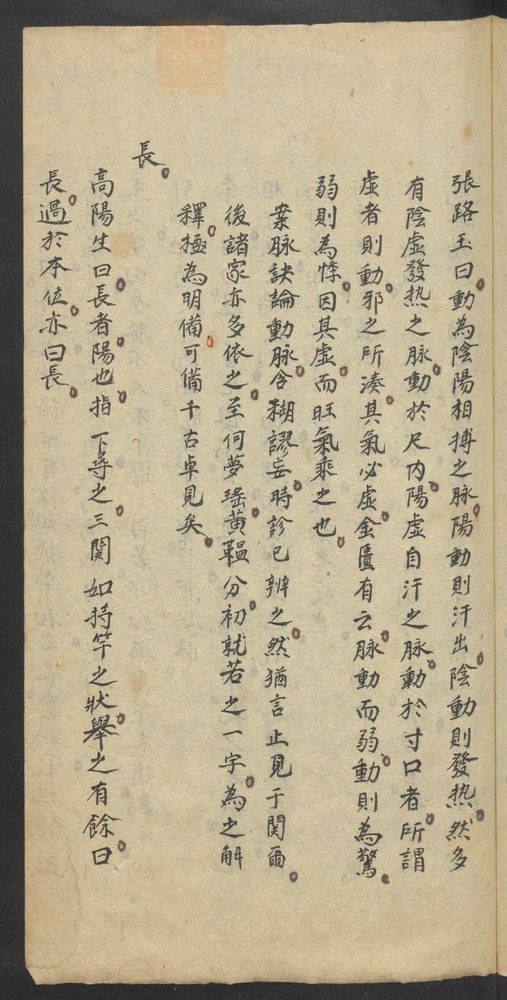 張路玉曰動為陰陽相搏之脉陽動則汗出陰動則發热然多
有陰虛發热之脉動於尺内陽虛自汗之脉動於寸口者所謂
虛者則動邪之所湊其氣必虛金匱有云脉動而弱動則為驚
弱則為悸因其虛而旺氣乘之也
案脉訣論動脉含糊謬妄時診已辨之然猶言止見于関爾
後諸家亦多依之至何夢瑤黄韞兮初就若之一字為之解
釋極為明備可備千古卓見矣
長
高陽生曰長者陽也指下尋之三関如持竿之狀舉之有餘曰
長過於本位亦曰長